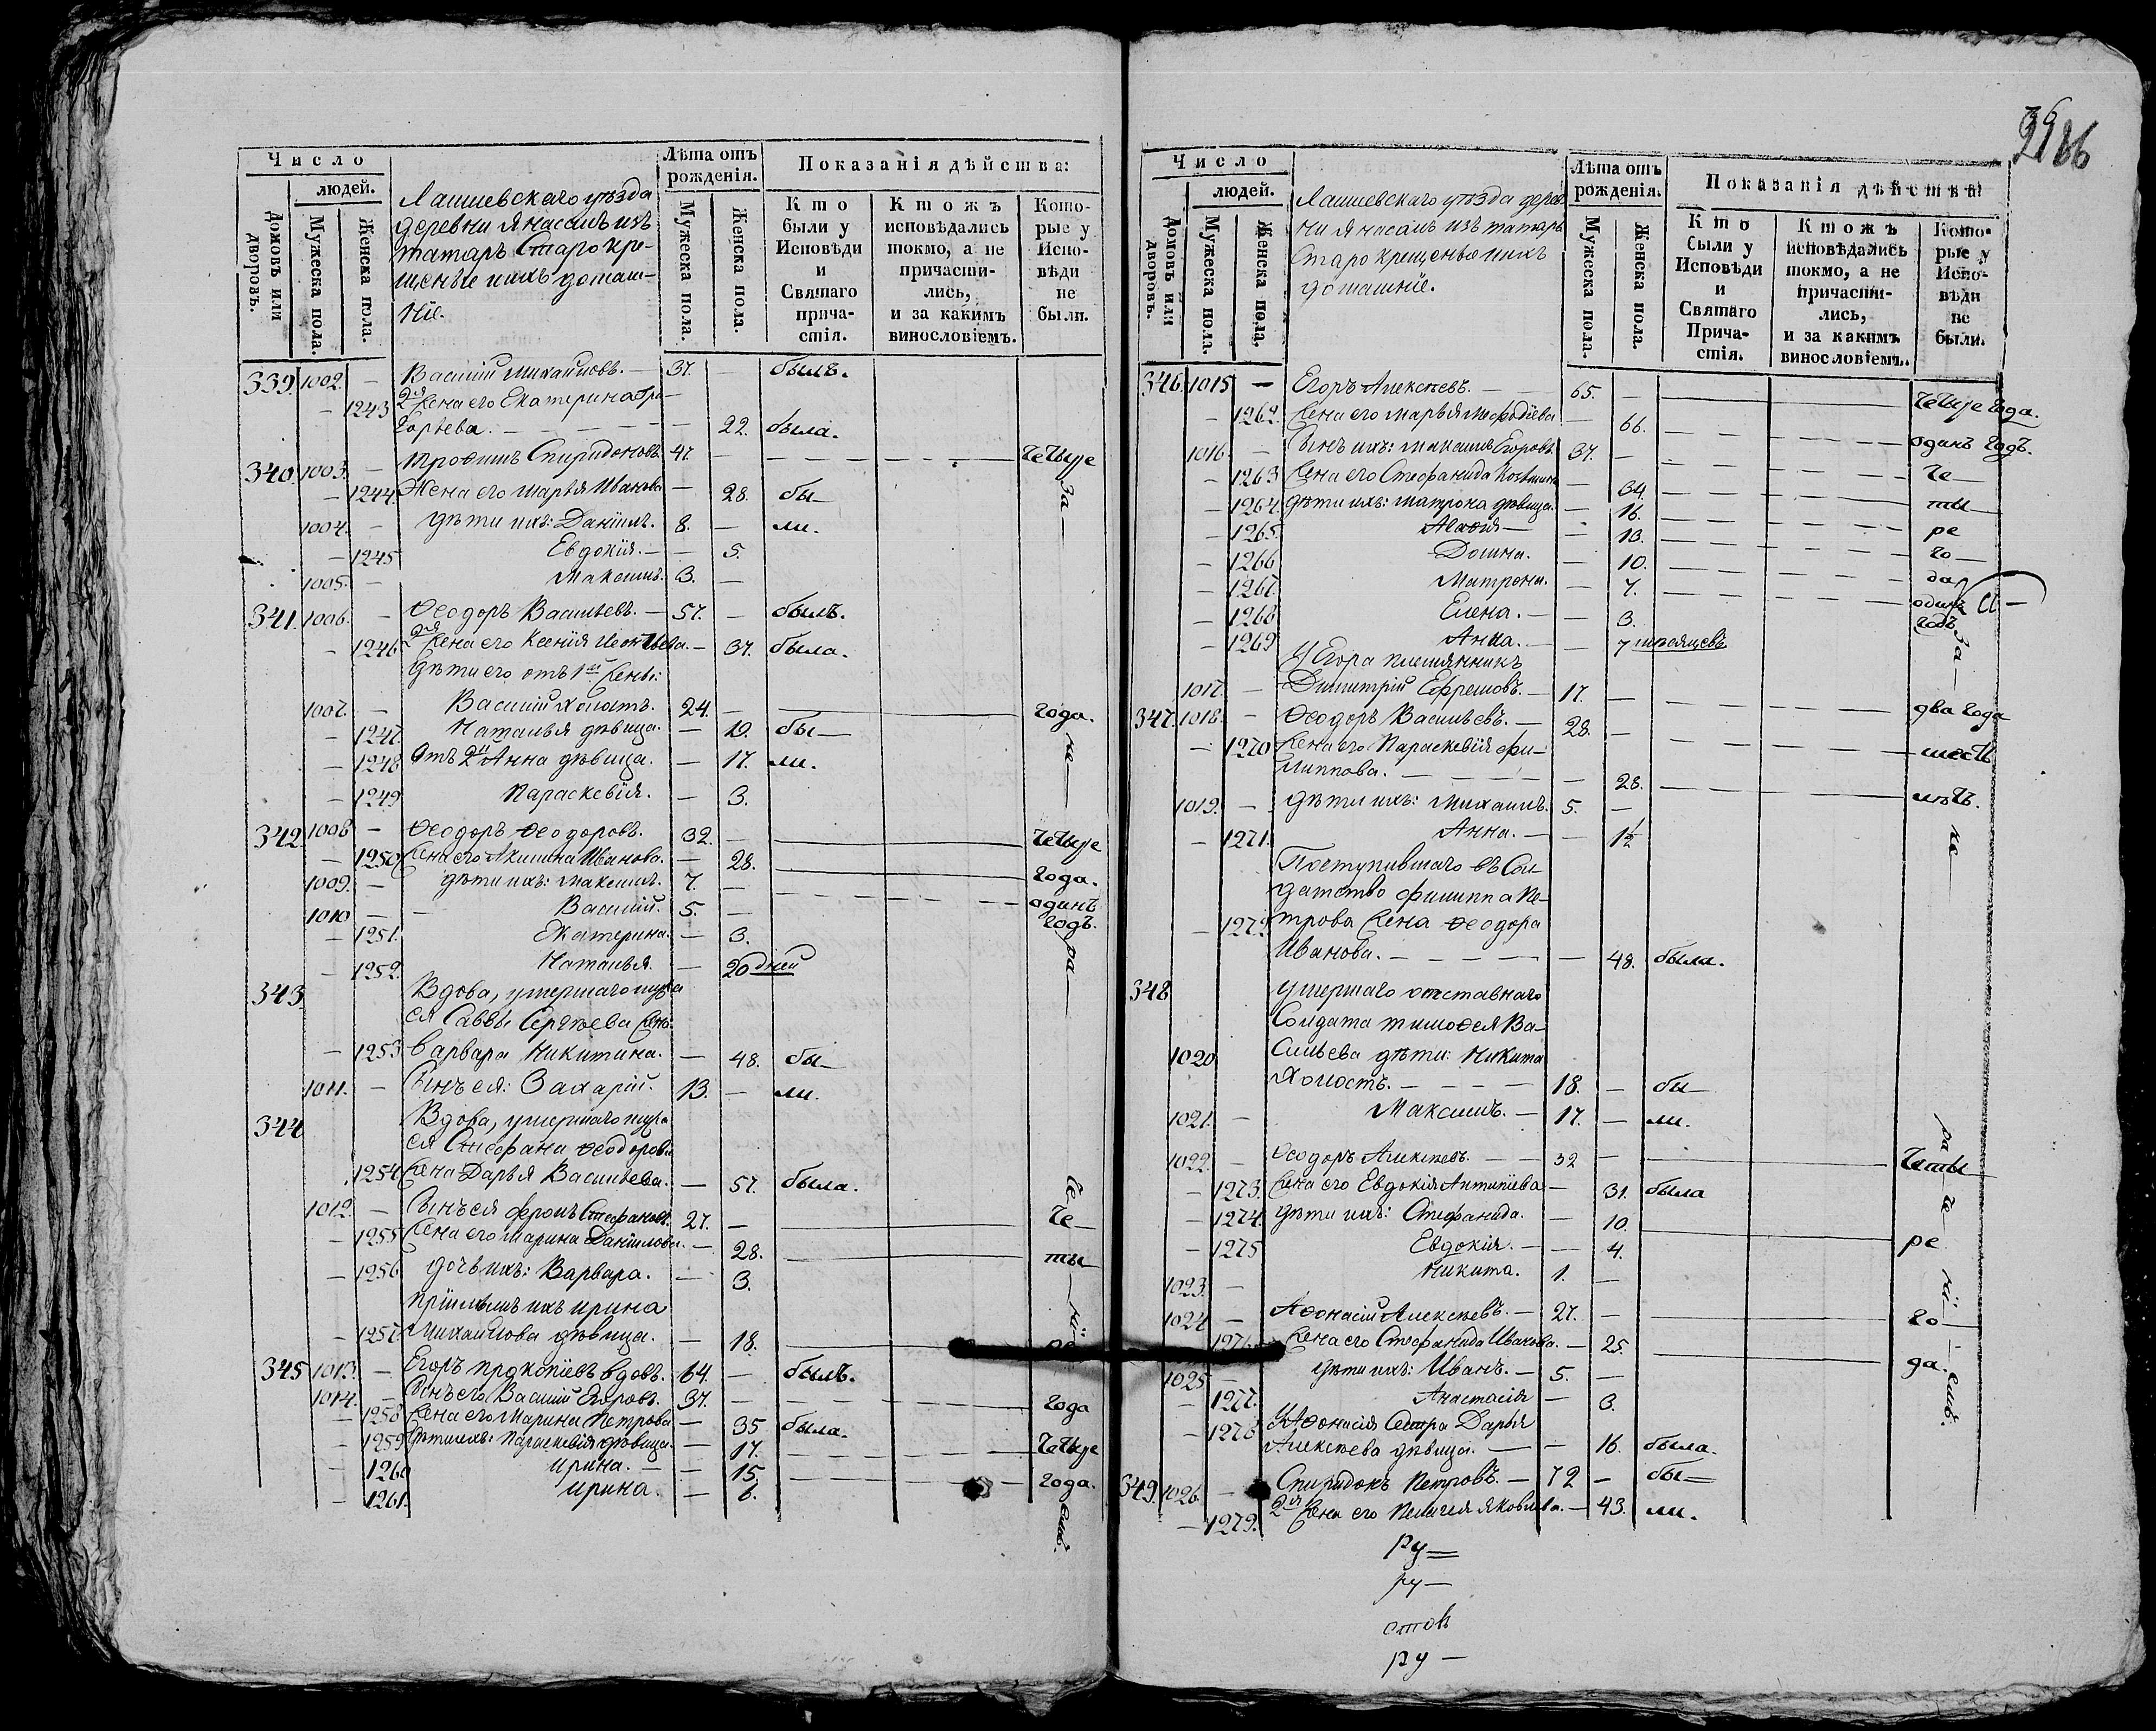 Число
людей.
Домовъ или дворовъ.
Мужеска пола.
Женска пола.
Лаишевскаго уѣзда
деревни Янасалъ изъ
татаръ Старокре-
щеные ихъ домаш-
ніе.
Лѣта отъ рожденія.
Мужеска пола.
Женска пола.
Показанія дѣйства:
Кто были у Исповѣди и Святаго прича-стія.
Ктожъ исповѣдались токмо, а не причасти-лись, и за какимъ винословіемъ.
Кото-рые у Испо-вѣди не были.
339. 1002. — Василій Михайловъ. — 37. — былъ.
— 1243 2я Жена его Екатерина Гри-
горьева. — 22. была.
340. 1003. — Трофимъ Спиридоновъ. 47. — четыре
— 1244. Жена его Марья Иванова — 28. бы
1004. — дѣти ихъ: Даніилъ. 8. — ли.
— 1245 Евдокія. — 5.
1005. — Максимъ. 3. —
341. 1006. — Ѳеодоръ Васильевъ. — 57. — былъ.
— 1246 2я Жена его Ксенія Леонтьева. — 37. была.
дѣти его отъ 1ой жены:
1007. — Василій холостъ. 24. — года.
— 1247. Наталья дѣвица. — 19. бы—
— 1248 Отъ 2й Анна дѣвица. — 17. ли.
— 1249 Параскевія. — 3.
342. 1008 — Ѳеодоръ Ѳеодоровъ. 32. — четыре
— 1250 Жена его Акилина Иванова. — 28. года.
1009. — дѣти ихъ: Максимъ. 7. — одинъ
1010 — Василій. 5. — годъ.
— 1251. Екатерина. — 3.
— 1252. Наталья. — 20 дней
343. Вдова, умершаго мужа
ея Саввы Сергѣева жена
— 1253 Варвара Никитина. — 48. бы—
1011. — Сынъ ея: Захарій. 13. — ли.
344 Вдова, умершаго мужа
ея Стефана Ѳеодорова
1254 Жена Дарья Васильева. — 57. была.
1012. — Сынъ ея Фролъ Стефановъ. 27. — че—
— 1255 Жена его Марина Даніилова. — 28. ты—
— 1256 дочь ихъ: Варвара. — 3.
Пріимышъ ихъ Ирина
— 1257 Михайлова дѣвица. — 18. ре
345 1013. — Егоръ Прокопіевъ вдовъ. 64. — былъ.
1014. — Сынъ его Василій Егоровъ. 37. — года
— 1258 Жена его Марина Петрова — 35 была.
— 1259 Дѣти ихъ: Параскевія дѣвица. — 17. четыре
— 1260 Ирина. — 15. года.
— 1261. Ирина. — 6.
за — не — ра — се — ні — емъ.
36
86
Число
людей.
Домовъ или дворовъ.
Мужеска пола.
Женска пола.
Лаишевскаго уѣзда дерев-
ни Янасалъ изъ татаръ
Старокрещеные ихъ
домашніе.
Лѣта отъ рожденія.
Мужеска пола.
Женска пола.
Показанія дѣйства:
Кто были у Исповѣди и Святаго Прича-стія.
Ктожъ исповѣдались токмо, а не причасти-лись, и за какимъ винословіемъ.
Кото-рые у Испо-вѣди не были.
346. 1015 — Егоръ Алексѣевъ. — 65. — четыре года.
— 1262. Жена его Марья Меѳодіева — 66. одинъ годъ.
1016. — Сынъ ихъ: Максимъ Егоровъ. 37. — че—
— 1263 Жена его Стефанида Козмина — 34. ты—
— 1264. дѣти ихъ: Матрона дѣвица. — 16. ре
— 1265. Агафія — 13. го—
— 1266 Домна. — 10. да
— 1267. Матрона. — 7. одинъ
— 1268 Елена. — 3. годъ
— 1269 Анна. — 7 мѣсяцевъ
У Егора племянникъ
1017. — Димитрій Ефремовъ. — 17. — два года
347. 1018. — Ѳеодоръ Васильевъ. — 28. — шесть
— 1270 Жена его Параскевія Фи-
липпова. — 28. лѣтъ.
1019. — дѣти ихъ: Михаилъ. 5. —
— 1271. Анна. — 1½
Поступившаго въ Сол-
датство Филиппа Пе-
— 1272 трова жена Ѳеодора
Иванова. — 48. была.
348 умершаго отставнаго
Солдата Тимоѳея Ва-
1020 сильева дѣти: Никита
холостъ. — 18. — бы—
1021. — Максимъ. — 17. — ли.
1022. — Ѳеодоръ Алексѣевъ. — 32 — четы
— 1273. Жена его Евдокія Антипіева — 31. была
— 1274. дѣти ихъ: Стефанида. — 10.
— 1275 Евдокія. — 4. ре
1023. — Никита. 1. —
1024. — Аѳонасій Алексѣевъ. — 27. — го—
1276 Жена его Стефанида Иванова. — 25. да.
1025 — дѣти ихъ: Иванъ. — 5. —
— 1277. Анастасія — 3.
— 1278 У Аѳонасія Сестра Дарья
Алексѣева дѣвица. — 16. была.
349. 1026. — Спиридонъ Петровъ. — 72 — бы=
— 1279. 2я Жена его Пелагея Яковлева. — 43. ли.
за — не — ра — че — ні — емъ.
ру=
ру—
ру—